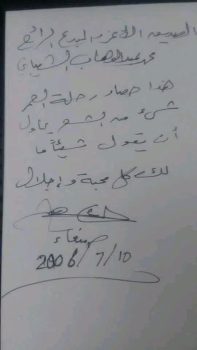 الصديق الأعز المبدع الرائع
محمد عبدالوهاب الشيباني
هذا حصاد رحلة العمر
شيء من الشعر يحاول
أن يقول شيئًا ما
لك كل محبة وإجلال
صنعاء
2006/7/10